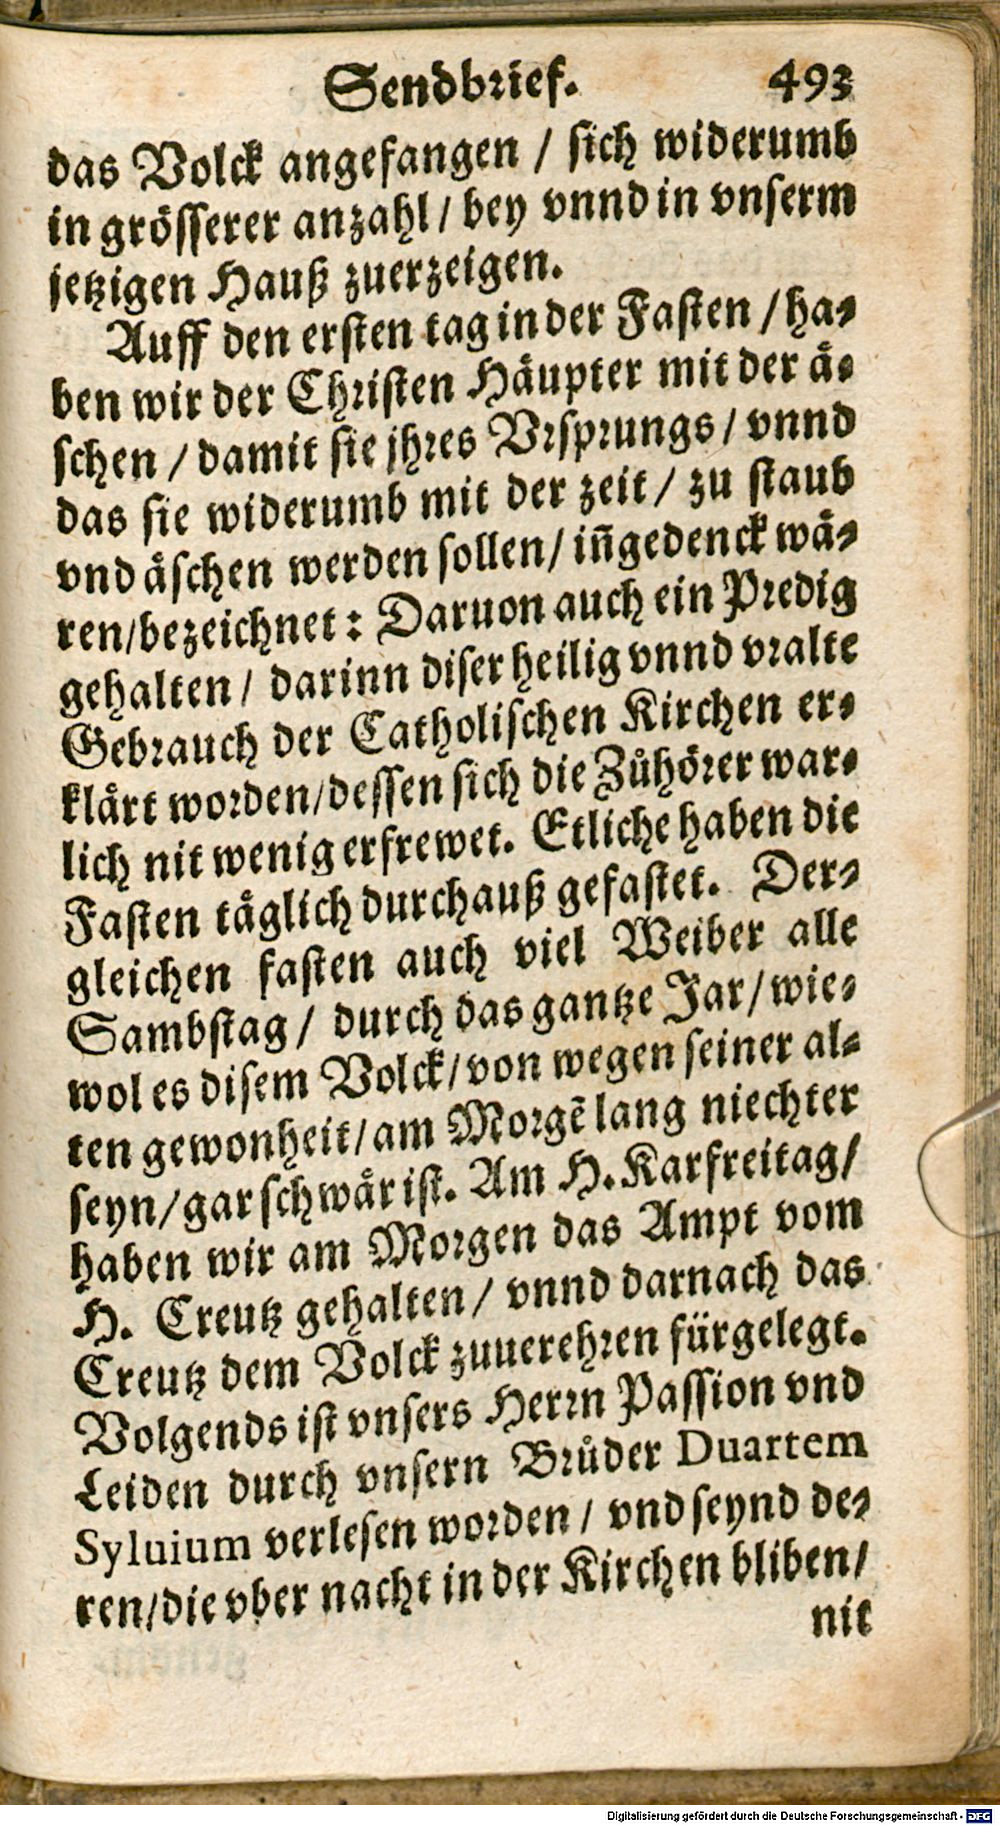 Sendbrief. 493
das Volck angefangen / sich widerumb
in grösserer anzahl / bey vnnd in vnserm
jetzigen Hauß zuerzeigen.
Auff den ersten tag in der Fasten / ha-
ben wir der Christen Häupter mit der ä-
schen / damit sie jhres Vrsprungs / vnnd
das sie widerumb mit der zeit / zu staub
vnd äschen werden sollen / iñgedenck wä-
ren / bezeichnet: Daruon auch ein Predig
gehalten / darinn diser heilig vnnd vralte
Gebrauch der Catholischen Kirchen er-
klärt worden / dessen sich die Zůhörer war-
lich nit wenig erfrewet. Etliche haben die
Fasten täglich durchauß gefastet. Der-
gleichen fasten auch viel Weiber alle
Sambstag / durch das gantze Jar / wie-
wol es disem Volck / von wegen seiner al-
ten gewonheit / am Morgẽ lang niechter
seyn / gar schwär ist. Am H. Karfreitag /
haben wir am Morgen das Ampt vom
H. Creutz gehalten / vnnd darnach das
Creutz dem Volck zuuerehren fürgelegt.
Volgends ist vnsers Herrn Passion vnd
Leiden durch vnsern Brůder Duartem
Syluium verlesen worden / vnd seynd de-
ren / die vber nacht in der Kirchen bliben /
nit
Digitalisierung gefördert durch die Deutsche Forschungsgemeinschaft - DFG